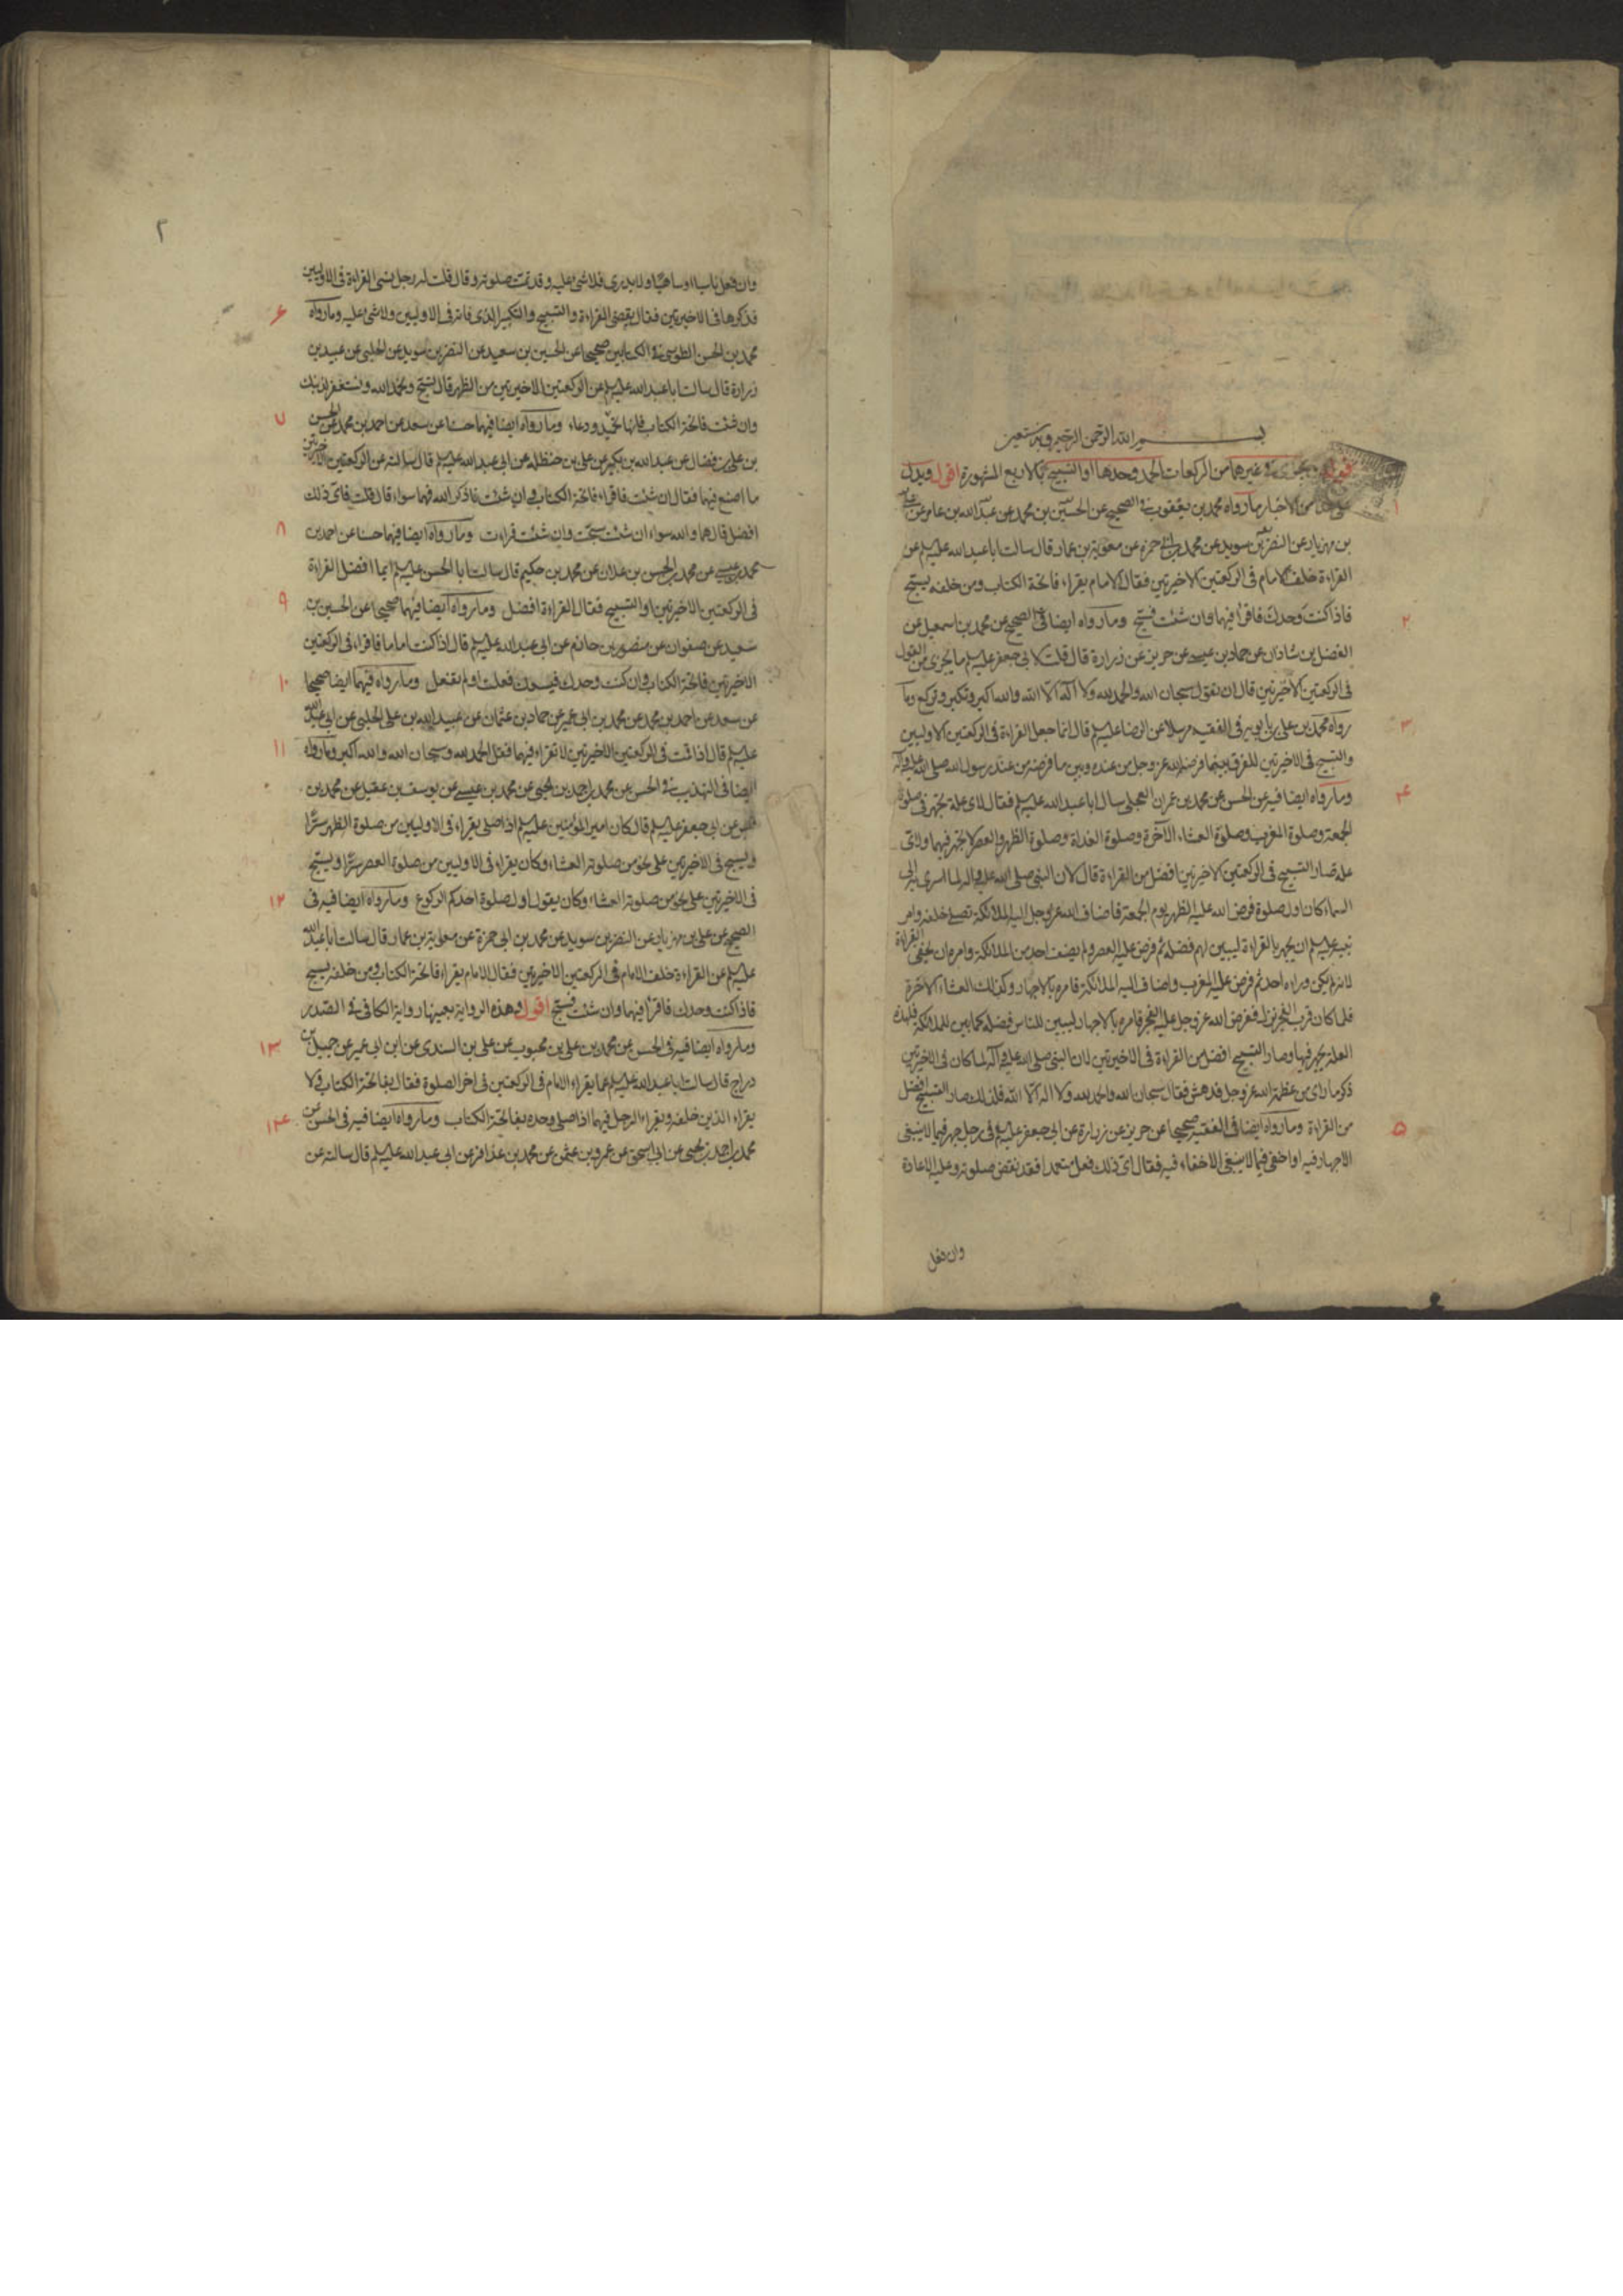 بسم الله الرحمن الرحيم وبه نستعين
يجزى فى غيرهما من الركعات الحمد وحدها او التسبيح بالاربع المشهورة اقول ويدل
۱
من الاخبار مارواه محمد بن يعقوب فى الصحيح عن الحسين بن محمد عن عبد الله بن عامر عن على
بن مهزيار عن النضر بن سويد عن محمد بن ابى حمزه عن معوية بن عمار قال سالت ابا عبد الله عليه السلم عن
القراءة خلف الامام فى الركعتين الاخيرتين فقال الامام يقراء فاتحة الكتاب ومن خلفه يسبح
۲
فاذا كنت وحدك فاقرا فيهما وان شئت فسبح ومارواه ايضا فى الصحيح عن محمد بن اسمعيل عن
الفضل بن شاذان عن حماد بن عيسى عن حريز عن زرارة قال قلت لابى جعفر عليه السلم ما يجزى من القول
فى الركعتين الاخيرتين قال ان تقول سبحان الله والحمد لله ولا اله الا الله والله اكبر وتكبر وتركع وما
۳
رواه محمد بن على بن بابويه فى الفقيه مرسلا عن الرضا عليه السلم قال انما جعل القراءة فى الركعتين الاوليين
والتسبيح فى الاخيرتين للفرق بين ما فرضه الله عز وجل من عنده وبين ما فرضه من عند رسول الله صلى الله عليه وآله
۴
ومارواه ايضا فيه عن الحسن عن محمد بن عمران العجلى سال ابا عبد الله عليه السلم فقال لاى علة يجهر فى صلوة
الجمعة وصلوة المغرب وصلوة العشاء الآخرة وصلوة الغداة وصلوة الظهر والعصر لا يجهر فيهما ولاى
علة صار التسبيح فى الركعتين الاخيرتين افضل من القراءة قال لان النبى صلى الله عليه واله لما اسرى به الى
السماء كان اول صلوة فرض الله عليه الظهر يوم الجمعة فاضاف الله عز وجل اليه الملائكة تصلى خلفه وامر
نبيه عليه السلم ان يجهر بالقراءة ليبين لهم فضله ثم فرض عليه العصر ولم يضف احد من الملائكة وامره ان يخفى القراءة
لانه لم يكن وراءه احد ثم فرض عليه المغرب واضاف اليه الملائكة فامره بالاجهار وكذلك العشاء الآخرة
فلما كان قرب الفجر نزل ففرض الله عز وجل عليه الفجر فامره بالاجهار ليبين للناس فضله كما بين للملائكة فلهذه
العلة يجهر فيها وصار التسبيح افضل من القراءة فى الاخيرتين لان النبى صلى الله عليه وآله لما كان فى الاخيرتين
ذكر ما راى من عظمة الله عز وجل فدهش فقال سبحان الله والحمد لله ولا اله الا الله فلذلك صار التسبيح افضل
۵
من القراءة ومارواه ايضا فى الفقيه صحيحا عن حريز عن زرارة عن ابى جعفر عليه السلم فى رجل جهر فيما لا ينبغى
الاجهار فيه او اخفى فيما لا ينبغى الاخفاء فيه فقال اى ذلك فعل متعمدا فقد نقض صلوته وعليه الاعادة
وان فعل
۲
وان فعل ناسيا او ساهيا او لا يدرى فلا شئ عليه وقد تمت صلوته وقال قلت له رجل نسى القراءة فى الاوليين
۶
فذكرها فى الاخيرتين فقال يقضى القراءة والتسبيح والتكبير الذى فاته فى الاوليين ولا شئ عليه ومارواه
محمد بن الحسن الطوسى فى الكتابين صحيحا عن الحسين بن سعيد عن النضر بن سويد عن الحلبى عن عبيد بن
زرارة قال سالت ابا عبد الله عليه السلم عن الركعتين الاخيرتين من الظهر قال تسبح وتحمد الله وتستغفر لذنبك
۷
وان شئت فاتحة الكتاب فانها تحميد ودعاء ومارواه ايضا فيهما حسنا عن سعد عن احمد بن محمد عن الحسن
بن على بن فضال عن عبد الله بن بكير عن على بن حنظله عن ابى عبد الله عليه السلم قال سالته عن الركعتين الاخيرتين
ما اصنع فيهما فقال ان شئت فاقراء فاتحة الكتاب وان شئت فاذكر الله فهما سواء قال قلت فاى ذلك
۸
افضل قال هما والله سواء ان شئت سبحت وان شئت قراءت ومارواه ايضا فيهما حسنا عن احمد بن
محمد بن عيسى عن محمد بن الحسن بن علان عن محمد بن حكيم قال سالت ابا الحسن عليه السلم ايما افضل القراءة
۹
فى الركعتين الاخيرتين او التسبيح فقال القراءة افضل ومارواه ايضا فيهما صحيحا عن الحسين بن
سعيد عن صفوان عن منصور بن حازم عن ابى عبد الله عليه السلم قال اذا كنت اماما فاقراء فى الركعتين
۱۰
الاخيرتين فاتحة الكتاب وان كنت وحدك فيسعك فعلت او لم تفعل ومارواه فيهما ايضا صحيحا
عن سعد عن احمد بن محمد عن محمد بن ابى عمير عن حماد بن عثمان عن عبيد الله بن على الحلبى عن ابى عبد الله
۱۱
عليه السلم قال اذا قمت فى الركعتين الاخيرتين لا تقراء فيهما فقل الحمد لله وسبحان الله والله اكبر ومارواه
ايضا فى التهذيب فى الحسن عن محمد بن احمد بن يحيى عن محمد بن عيسى عن يوسف بن عقيل عن محمد بن
قيس عن ابى جعفر عليه السلم قال كان امير المؤمنين عليه السلم اذا صلى يقراء فى الاوليين من صلوة الظهر سرا
ويسبح فى الاخيرتين على نحو من صلوته العشاء وكان يقراء فى الاوليين من صلوة العصر سرا ويسبح
۱۲
فى الاخيرتين على نحو من صلوته العشاء وكان يقول اول صلوة احدكم الركوع ومارواه ايضا فيه فى
الصحيح عن على بن مهزيار عن النضر بن سويد عن محمد بن ابى حمزة عن معوية بن عمار قال سالت ابا عبد الله
عليه السلم عن القراءة خلف الامام فى الركعتين الاخيرتين فقال الامام يقراء فاتحة الكتاب ومن خلفه يسبح
فاذا كنت وحدك فاقرا فيهما وان شئت فسبح اقول وهذه الرواية بعينها رواية الكافى فى الصدر
۱۳
ومارواه ايضا فيه فى الحسن عن محمد بن على بن محبوب عن على بن السندى عن ابن ابى عمير عن جميل بن
دراج قال سالت ابا عبد الله عليه السلم عما يقراء الامام فى الركعتين فى اخر الصلوة فقال بفاتحة الكتاب ولا
۱۴
يقراء الذين خلفه ويقراء الرجل فيهما اذا صلى وحده بفاتحة الكتاب ومارواه ايضا فيه فى الحسن عن
محمد بن احمد بن يحيى عن ابى اسحق عن عمرو بن عثمن عن محمد بن عذافر عن ابى عبد الله عليه السلم قال سالته عن